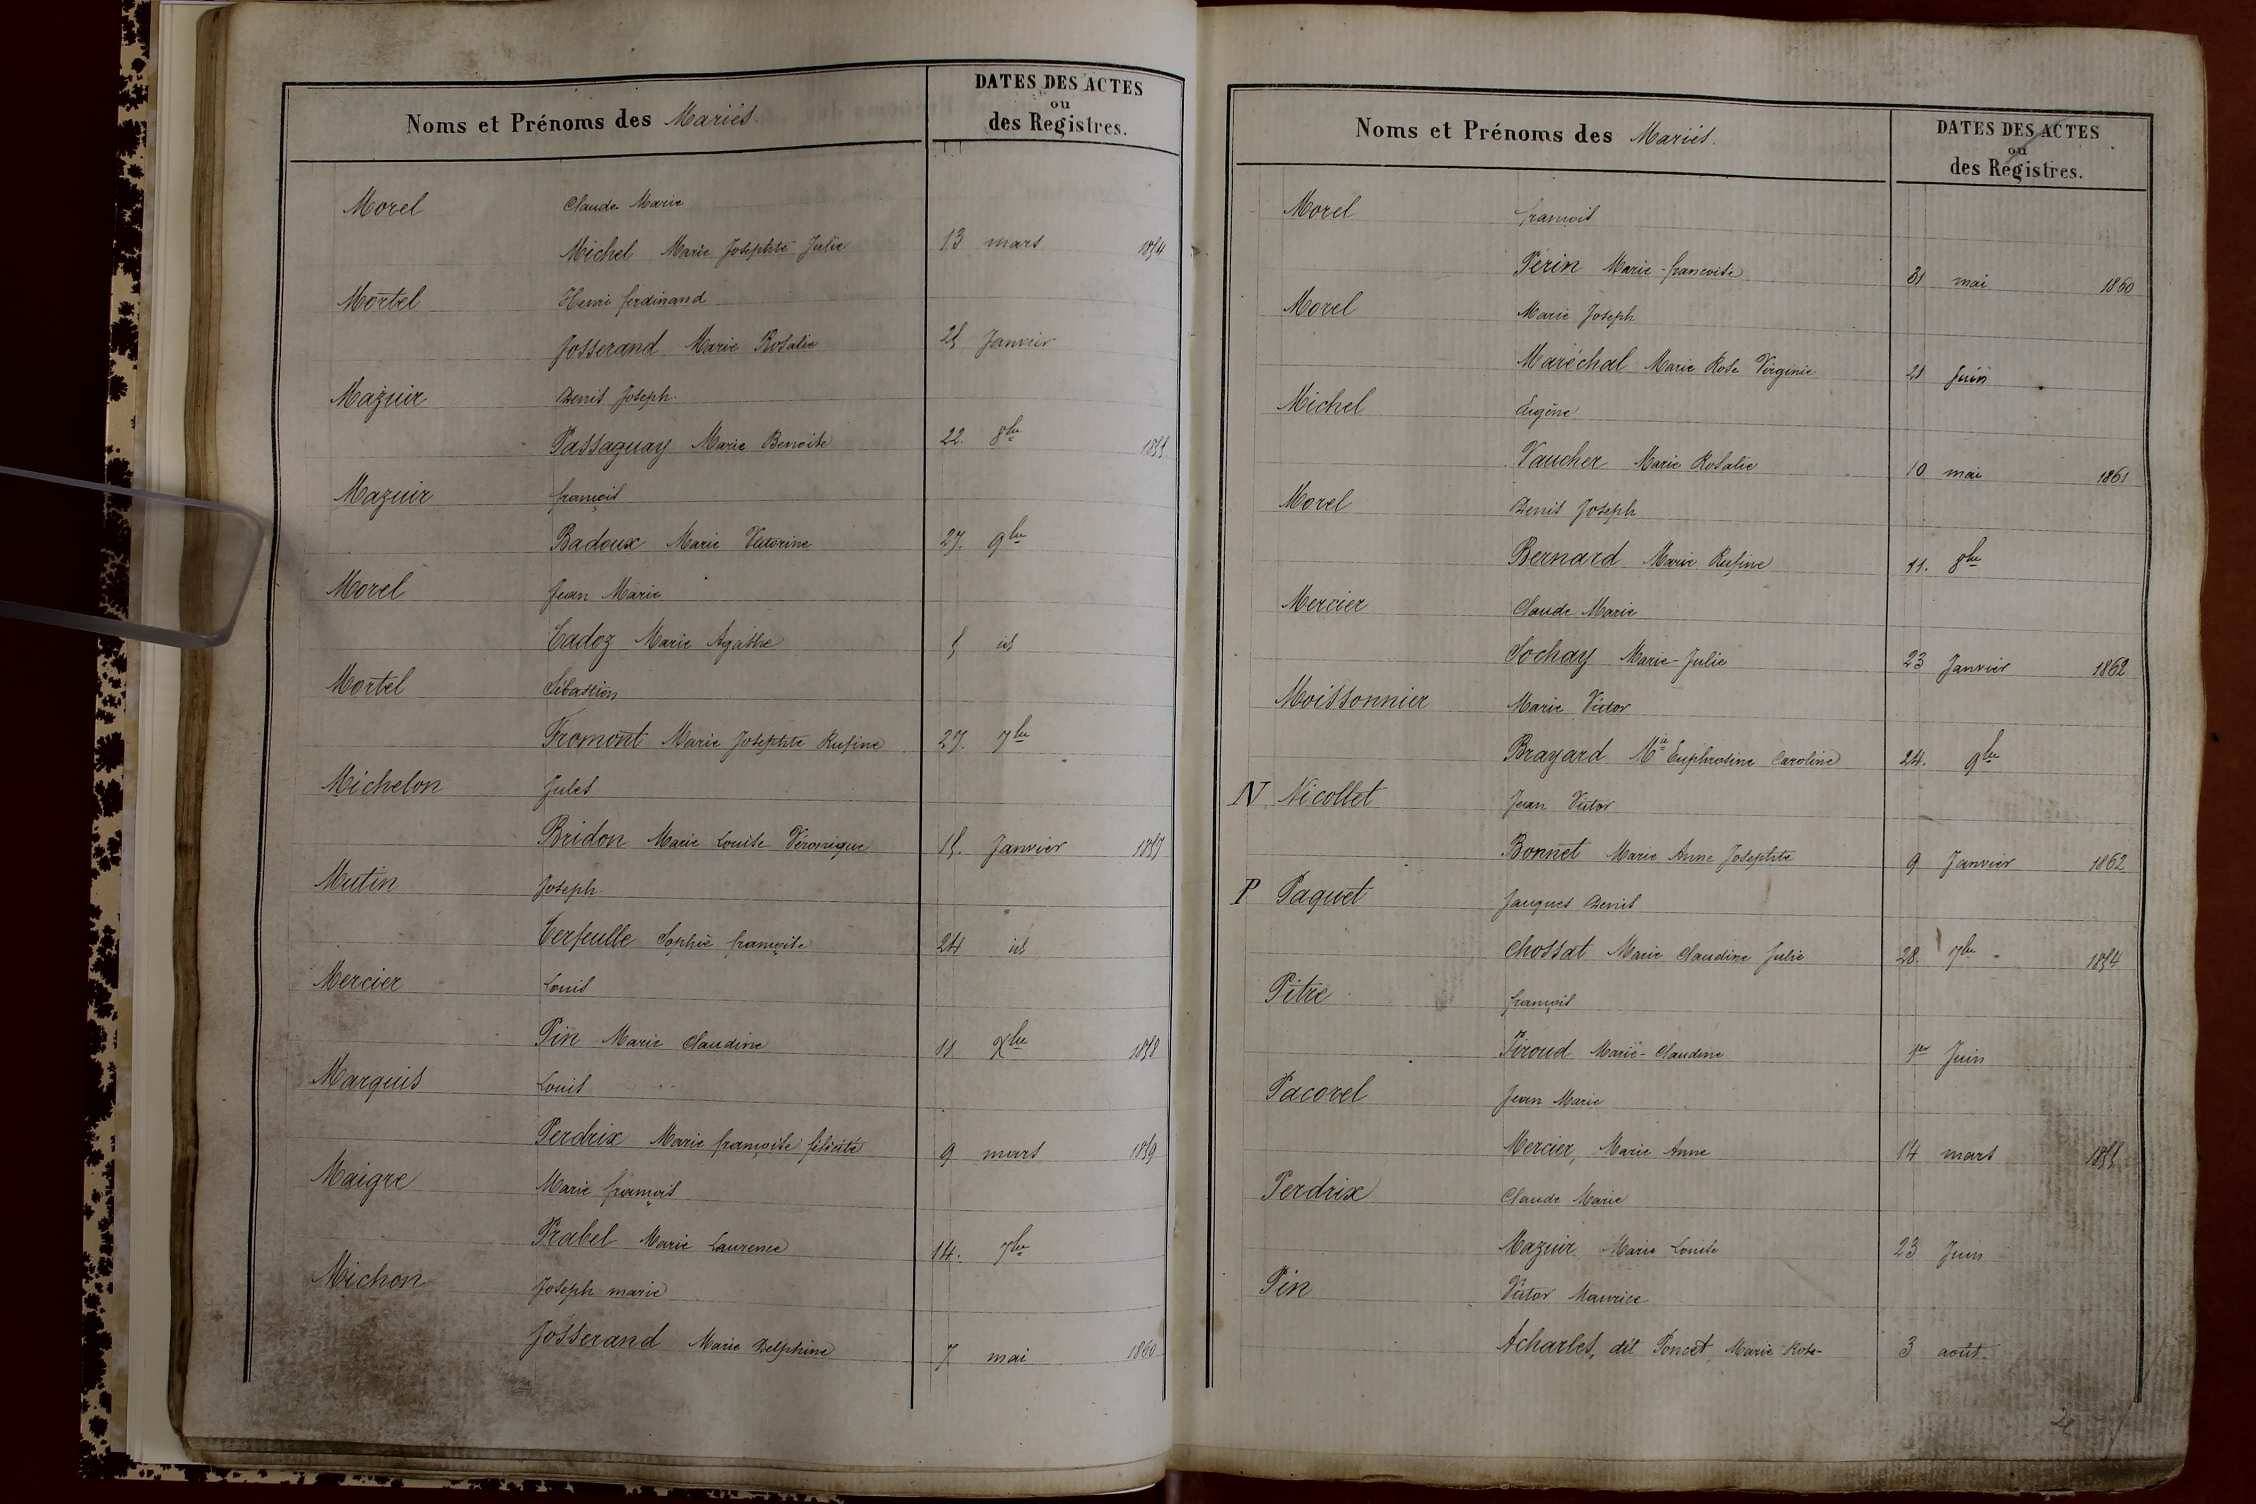 Noms et Prénoms des Mariés.
DATES DES ACTES
ou
des Registres.
Morel Claude Marie
Michel Marie Josephte Julie 13 mars 1854
Mortel Henri ferdinand
Josserand Marie Rosalie 25 Janvier
Mazuir Denis Joseph.
Passaquay Marie Benoite 22. 8bre 1855
Mazuir françois
Badoux Marie Victorine 27. 9bre
Morel Jean Marie
Cadoz Marie Agathe 5 id
Mortel Sébastien
Fromont Marie Josephte Rufine 27. 7bre
Michelon Jules
Bridon Marie Louise Véronique 15. Janvier 1857
Mutin Joseph
Cerfeulle Sophie françoise 24 id
Mercier Louis
Pin Marie Claudine 11 Xbre 1858
Marquis Louis
Perdrix Marie françoise félicité 9 mars 1859
Maigre Marie françois
Prabel Marie Laurence 14. 7bre
Michon Joseph marie
Josserand Marie Delphine 7 mai 1860
Noms et Prénoms des Mariés.
DATES DES ACTES
ou
des Registres.
Morel françois
Perin Marie-françoise 31 mai 1860
Morel Marie Joseph
Maréchal Marie Rose Virginie 28 Juin
Michel Eugène
Vaucher Marie Rosalie 10 mai 1861
Morel Denis Joseph
Bernard Marie Rufine 11. 8bre
Mercier Claude Marie
Sochay Marie-Julie 23 Janvier 1862
Moissonnier Marie Victor
Brayard Mie Euphrosine Caroline 24. 9bre
N Nicollet Jean Victor
Bonnet Marie Anne Josephte 9 Janvier 1862
P Paquet Jacques Denis
Chossat Marie Claudine Julie 28. 7bre 1854
Pitre françois
Piroud Marie-Claudine 1er Juin
Pacorel Jean Marie
Mercier, Marie Anne 14 mars 1855
Perdrix Claude Marie
Mazuir Marie Louise 23 Juin
Pin Victor Maurice
Acharles, dit Poncet, Marie Rose 3 août.